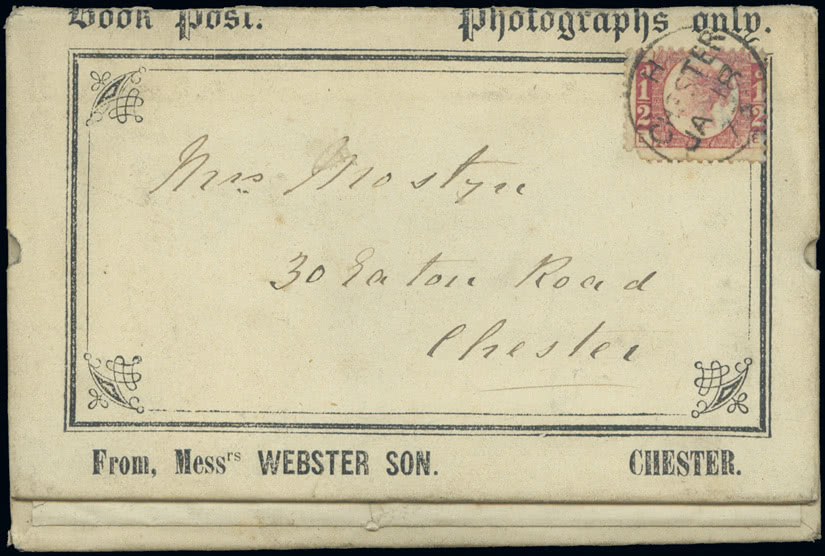 Book Post. Photographs only.
1/2 1/2
CHESTER
H
JA 18
Mrs Mostyn
30 Eaton Road
Chester
From, Messrs WEBSTER SON. CHESTER.